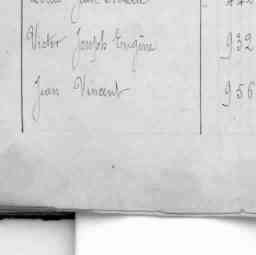 Victor Joseph Eugène 932
Jean Vincent 956